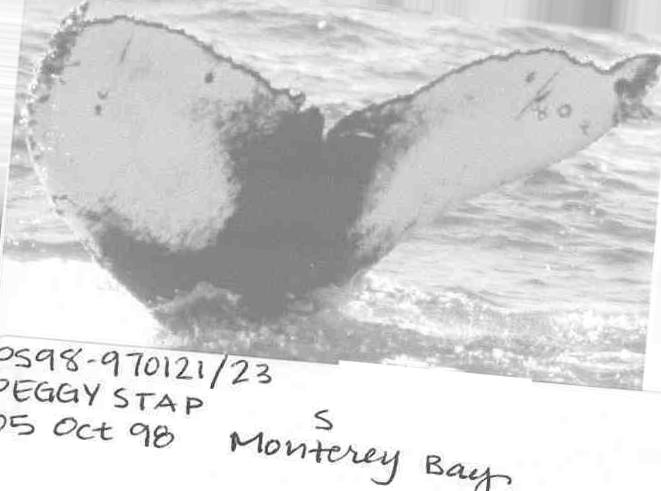 PS98-970121/23
PEGGY STAP
05 Oct 98 S Monterey Bay